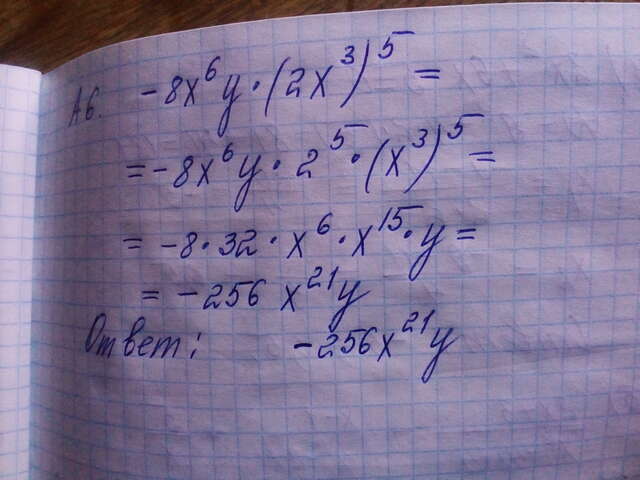 А6. -8x⁶y·(2x³)⁵=
=-8x⁶y·2⁵·(x³)⁵=
=-8·32·x⁶·x¹⁵·y=
=-256x²¹y
Ответ: -256x²¹y